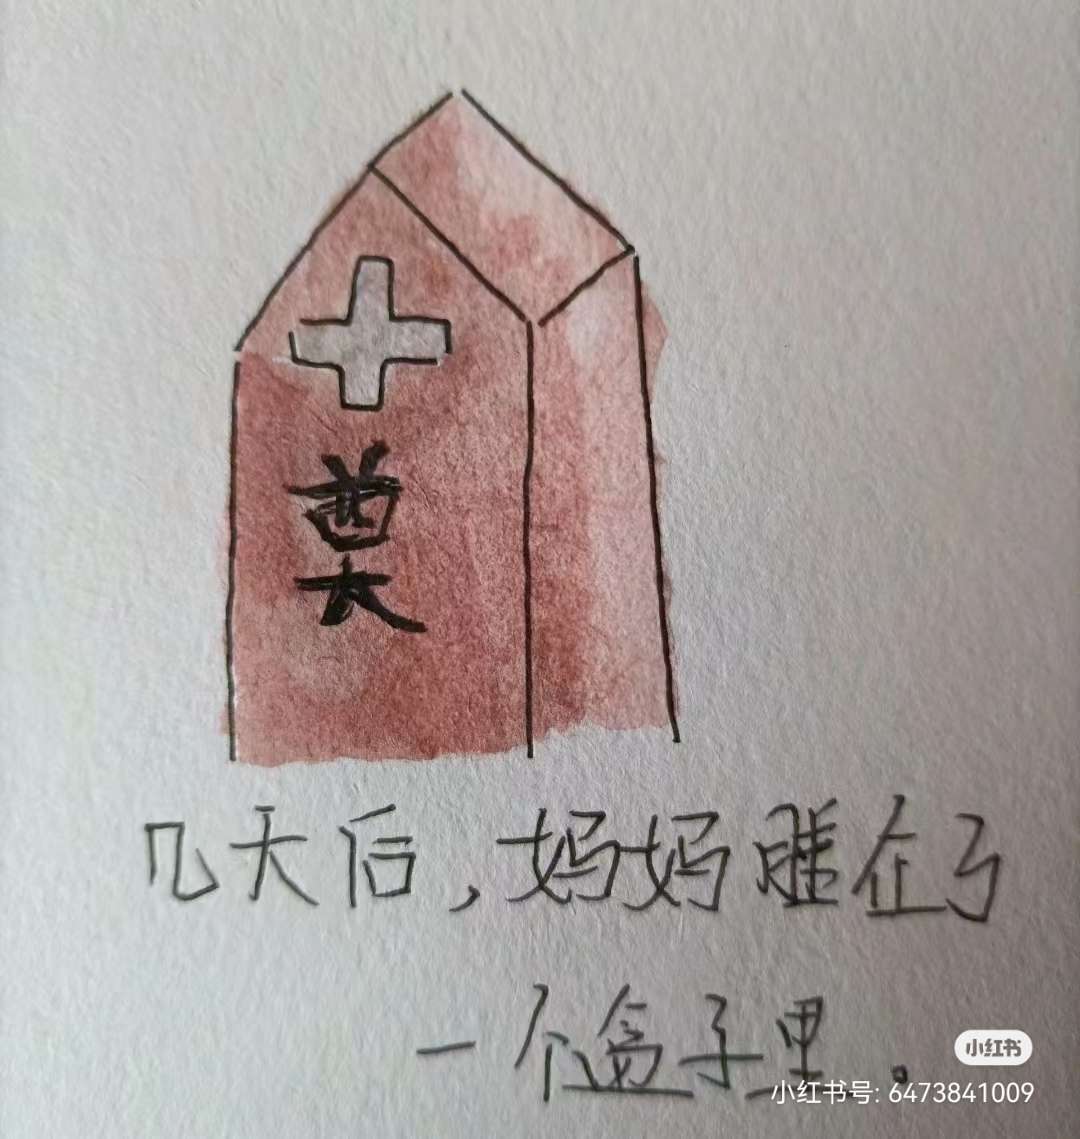 奠
几天后,妈妈睡在了
一个盒子里。
小红书
小红书号: 6473841009